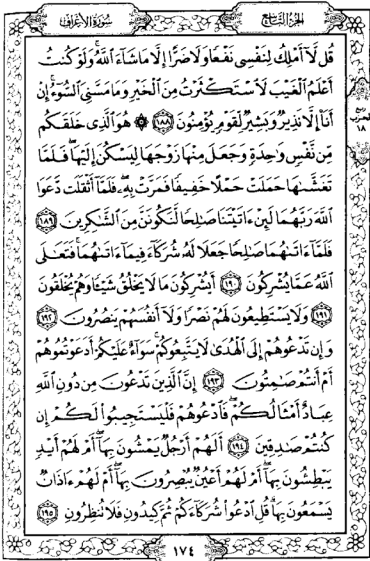 سورة الأعراف
الجزء التاسع
قُل لَّا أَمْلِكُ لِنَفْسِى نَفْعًا وَلَا ضَرًّا إِلَّا مَا شَاءَ ٱللَّهُ وَلَوْ كُنتُ
أَعْلَمُ ٱلْغَيْبَ لَٱسْتَكْثَرْتُ مِنَ ٱلْخَيْرِ وَمَا مَسَّنِىَ ٱلسُّوءُ إِنْ
أَنَا۠ إِلَّا نَذِيرٌ وَبَشِيرٌ لِّقَوْمٍ يُؤْمِنُونَ ﴿١٨٨﴾ ۞ هُوَ ٱلَّذِى خَلَقَكُم
مِّن نَّفْسٍ وَٰحِدَةٍ وَجَعَلَ مِنْهَا زَوْجَهَا لِيَسْكُنَ إِلَيْهَا فَلَمَّا
تَغَشَّىٰهَا حَمَلَتْ حَمْلًا خَفِيفًا فَمَرَّتْ بِهِۦ فَلَمَّا أَثْقَلَت دَّعَوَا
ٱللَّهَ رَبَّهُمَا لَئِنْ ءَاتَيْتَنَا صَٰلِحًا لَّنَكُونَنَّ مِنَ ٱلشَّٰكِرِينَ ﴿١٨٩﴾
فَلَمَّا ءَاتَىٰهُمَا صَٰلِحًا جَعَلَا لَهُۥ شُرَكَاءَ فِيمَا ءَاتَىٰهُمَا فَتَعَٰلَى
ٱللَّهُ عَمَّا يُشْرِكُونَ ﴿١٩٠﴾ أَيُشْرِكُونَ مَا لَا يَخْلُقُ شَيْـًٔا وَهُمْ يُخْلَقُونَ
﴿١٩١﴾ وَلَا يَسْتَطِيعُونَ لَهُمْ نَصْرًا وَلَا أَنفُسَهُمْ يَنصُرُونَ ﴿١٩٢﴾
وَإِن تَدْعُوهُمْ إِلَى ٱلْهُدَىٰ لَا يَتَّبِعُوكُمْ سَوَاءٌ عَلَيْكُمْ أَدَعَوْتُمُوهُمْ
أَمْ أَنتُمْ صَٰمِتُونَ ﴿١٩٣﴾ إِنَّ ٱلَّذِينَ تَدْعُونَ مِن دُونِ ٱللَّهِ
عِبَادٌ أَمْثَالُكُمْ فَٱدْعُوهُمْ فَلْيَسْتَجِيبُوا۟ لَكُمْ إِن
كُنتُمْ صَٰدِقِينَ ﴿١٩٤﴾ أَلَهُمْ أَرْجُلٌ يَمْشُونَ بِهَا أَمْ لَهُمْ أَيْدٍ
يَبْطِشُونَ بِهَا أَمْ لَهُمْ أَعْيُنٌ يُبْصِرُونَ بِهَا أَمْ لَهُمْ ءَاذَانٌ
يَسْمَعُونَ بِهَا قُلِ ٱدْعُوا۟ شُرَكَاءَكُمْ ثُمَّ كِيدُونِ فَلَا تُنظِرُونِ ﴿١٩٥﴾
ربع
الحزب
١٨
١٧٤